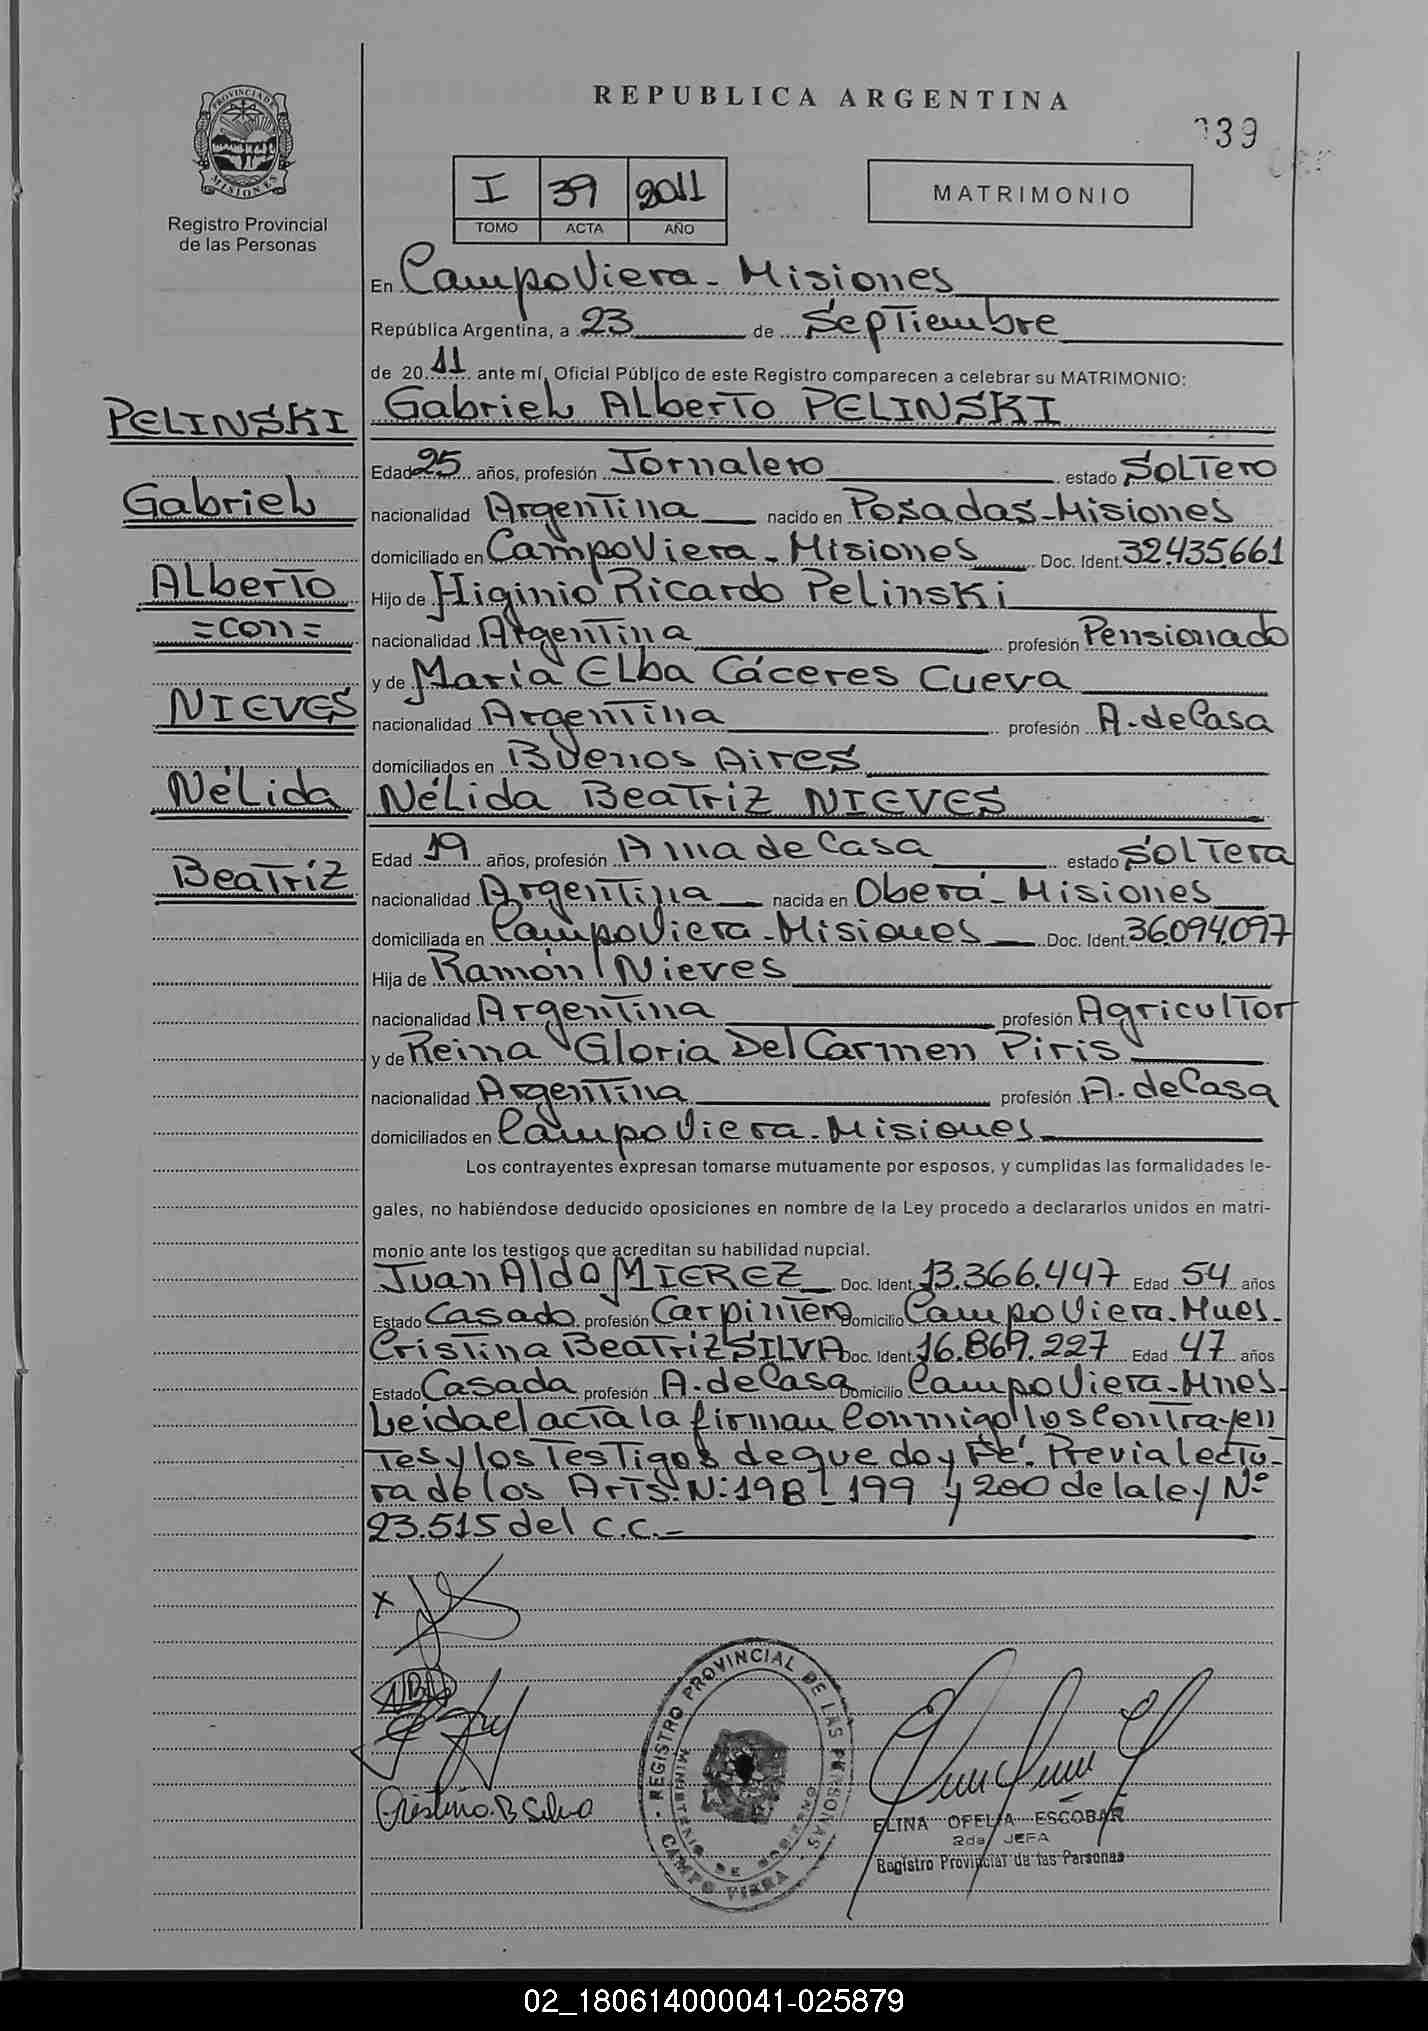 REPUBLICA ARGENTINA
39
PROVINCIA DE MISIONES
Registro Provincial
de las Personas
I 39 2011
TOMO ACTA AÑO
MATRIMONIO
En CampoViera - Misiones
República Argentina, a 23 de Septiembre
de 2011 ante mí, Oficial Público de este Registro comparecen a celebrar su MATRIMONIO:
PELINSKI
Gabriel
Alberto
=con=
NIEVES
Nélida
Beatriz
Gabriel Alberto PELINSKI
Edad 25 años, profesión Jornalero estado Soltero
nacionalidad Argentina nacido en Posadas-Misiones
domiciliado en CampoViera - Misiones Doc. Ident. 32.435.661
Hijo de Higinio Ricardo Pelinski
nacionalidad Argentina profesión Pensionado
y de María Elba Cáceres Cueva
nacionalidad Argentina profesión A. de Casa
domiciliados en Buenos Aires
Nélida Beatriz NIEVES
Edad 19 años, profesión Ama de Casa estado Soltera
nacionalidad Argentina nacida en Oberá - Misiones
domiciliada en CampoViera - Misiones Doc. Ident. 36.094.097
Hija de Ramón Nieves
nacionalidad Argentina profesión Agricultor
y de Reina Gloria Del Carmen Piris
nacionalidad Argentina profesión A. de Casa
domiciliados en Campo Viera - Misiones
Los contrayentes expresan tomarse mutuamente por esposos, y cumplidas las formalidades le-
gales, no habiéndose deducido oposiciones en nombre de la Ley procedo a declararlos unidos en matri-
monio ante los testigos que acreditan su habilidad nupcial.
Juan Aldo MIEREZ Doc. Ident. 13.366.447 Edad 54 años
Estado Casado profesión Carpintero Domicilio Campo Viera. Mnes.
Cristina Beatriz SILVA Doc. Ident. 16.869.227 Edad 47 años
Estado Casada profesión A. de Casa Domicilio Campo Viera. Mnes.
Leida el acta la firman Conmigo los Contrayen
tes y los Testigos de que doy Fé. Previa lectu-
ra de los Arts. N: 198 - 199 y 200 de la ley Nº
23.515 del C.C.-
x
Cristina B Silva
REGISTRO PROVINCIAL DE LAS PERSONAS
MINISTERIO DE GOBIERNO
CAMPO VIERA
ELINA OFELIA ESCOBAR
2da JEFA
Registro Provincial de las Personas
02_180614000041-025879